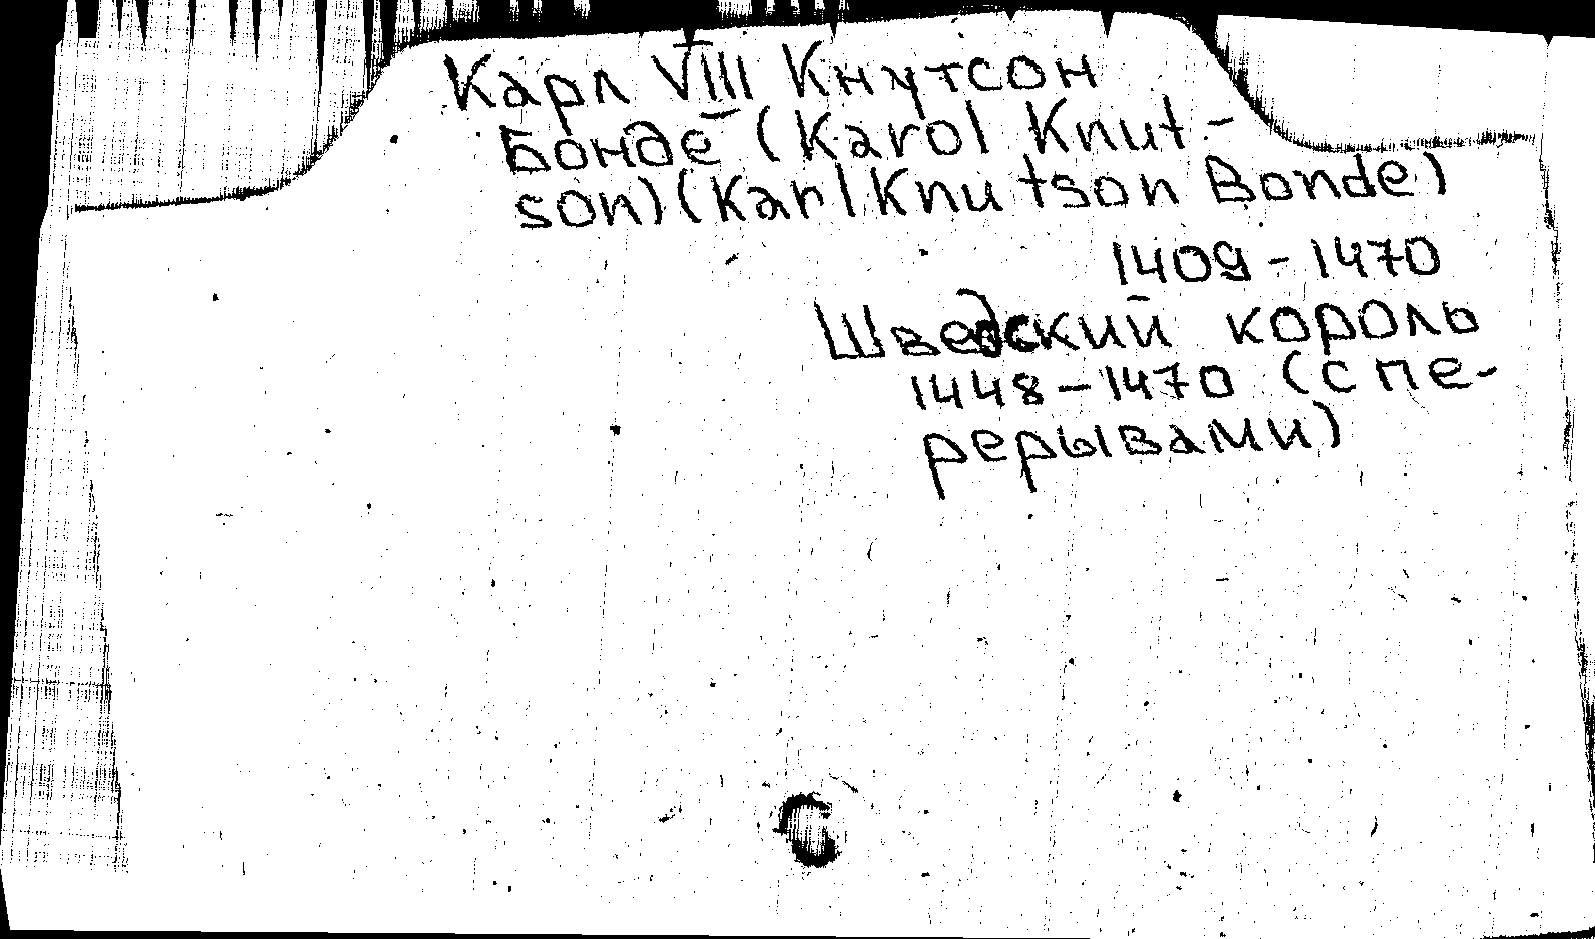 Карл VIII Кнутсон
Бонде (Karol Knut-
son) (Karl Knutson Bonde)
1409 - 1470
Шведский король
1448-1470 (с пе-
рерывами)